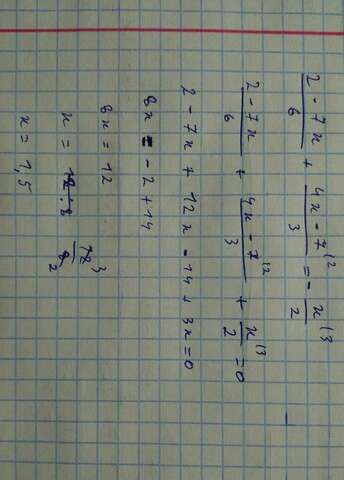 (2 - 7x)/6 + (4x - 7)/3 ⁽² = - x/2 ⁽³
(2 - 7x)/6 + (4x - 7)/3 ⁽² + x/2 ⁽³ = 0
2 - 7x + 12x - 14 + 3x = 0
8x = - 2 + 14
8x = 12
x = 12/8 3 2
x = 1,5